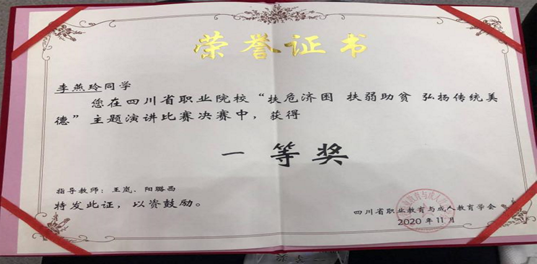 荣誉证书
李燕玲同学
您在四川省职业院校“扶危济困 扶弱助贫 弘扬传统美
德”主题演讲比赛决赛中，获得
一等奖
指导教师：王岚、阳鹏
特发此证，以资鼓励。
四川省职业教育与成人教育学会
2020年11月